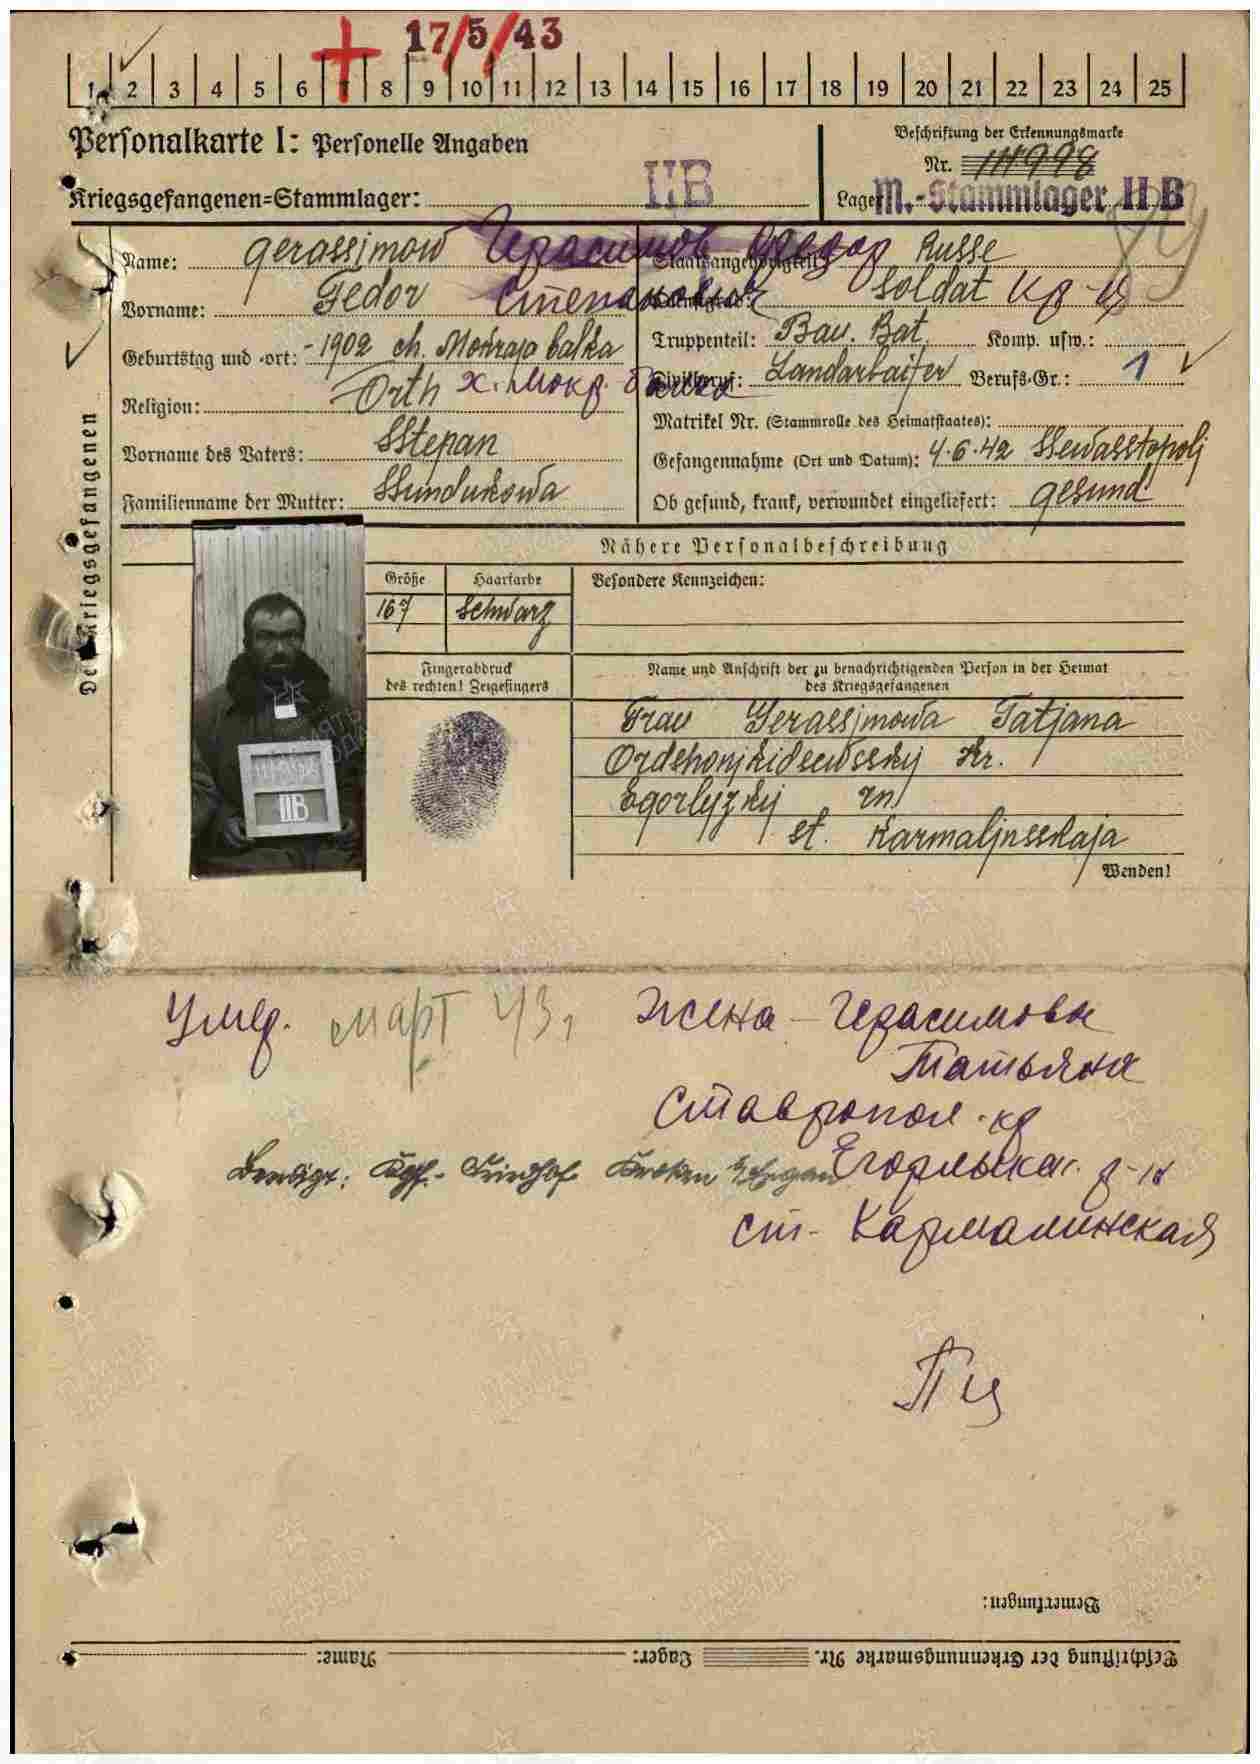 17/5/43
1 2 3 4 5 6 7 8 9 10 11 12 13 14 15 16 17 18 19 20 21 22 23 24 25
Personalkarte I: Personelle Angaben
Beschriftung der Erkennungsmarke
Nr. 111998
Kriegsgefangenen=Stammlager: II B
Lager M.-Stammlager II B
Des Kriegsgefangenen
Name: Gerassjmow Герасимов Федор
Staatsangehörigkeit: Russe
Vorname: Fedor Степанович
Dienstgrad: Soldat кр-ц
Geburtstag und -ort: -1902 ch. Mokraja balka
Truppenteil: Bau. Bat. Komp. usw.:
Religion: Orth х. Мокр. балка
Zivilberuf: Landarbaiter Berufs-Gr.: 1
Matrikel Nr. (Stammrolle des Heimatstaates):
Vorname des Vaters: Sstepan
Gefangennahme (Ort und Datum): 4.6.42 Ssewasstopolj
Familienname der Mutter: Ssundukowa
Ob gesund, krank, verwundet eingeliefert: gesund
Nähere Personalbeschreibung
Größe Haarfarbe Besondere Kennzeichen:
167 Schwarz
II B
Fingerabdruck
des rechten! Zeigefingers
Name und Anschrift der zu benachrichtigenden Person in der Heimat
des Kriegsgefangenen
Frau Gerassjmowa Tatjana
Ordshonjkidsewsskij Kr.
Egorlyzkij rn
st. Karmaljnsskaja
Wenden!
Умер. март 43 г
Жена - Герасимова
Татьяна
Ставропол. кр
Егорлыкс. р-н
ст. Кармалинская
Beerdigt: Kgf.-Friedhof
Bemerkungen:
Beschriftung der Erkennungsmarke Nr. Lager: Name:
ПАМЯТЬ НАРОДА